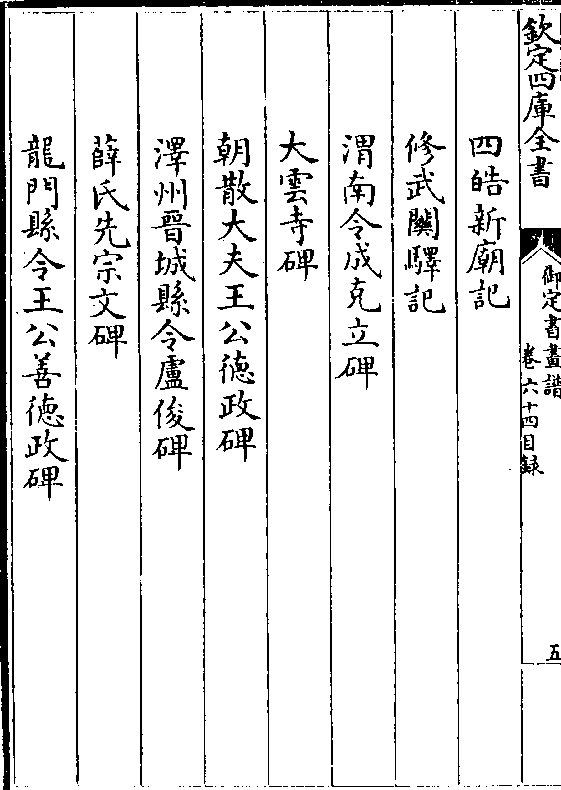 欽定四庫全書
御定書畫譜
卷六十四目録
五
四皓新廟記
修武關驛記
渭南令成克立碑
大雲寺碑
朝散大夫王公德政碑
澤州晉城縣令盧俊碑
薛氏先宗文碑
龍門縣令王公善德政碑